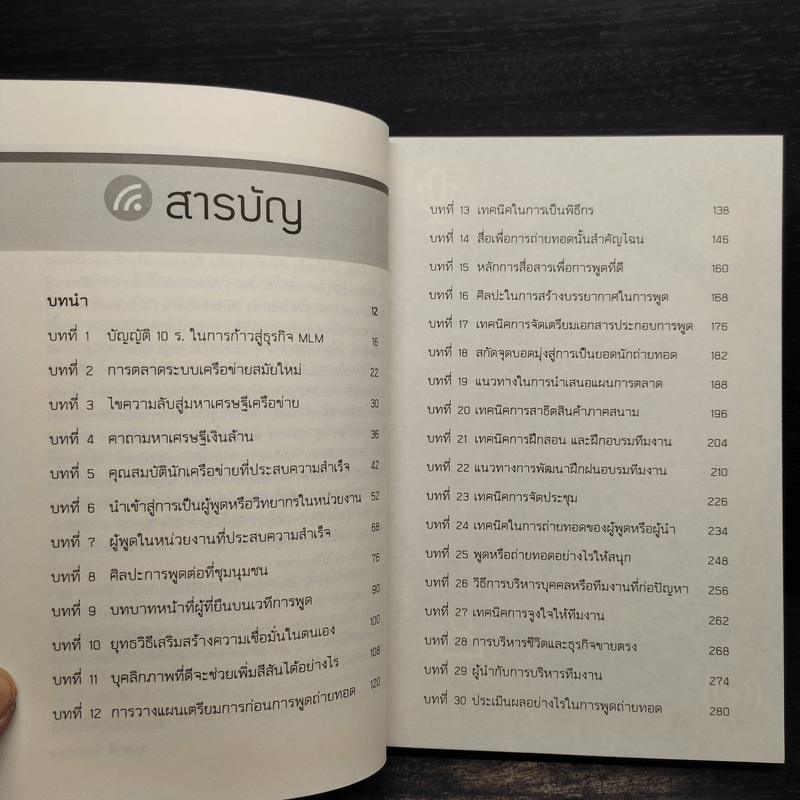 สารบัญ
บทนำ 12
บทที่ 1 บัญญัติ 10 ร. ในการก้าวสู่ธุรกิจ MLM 16
บทที่ 2 การตลาดระบบเครือข่ายสมัยใหม่ 22
บทที่ 3 ไขความลับสู่มหาเศรษฐีเครือข่าย 30
บทที่ 4 คาถามหาเศรษฐีเงินล้าน 36
บทที่ 5 คุณสมบัตินักเครือข่ายที่ประสบความสำเร็จ 42
บทที่ 6 นำเข้าสู่การเป็นผู้พูดหรือวิทยากรในหน่วยงาน 52
บทที่ 7 ผู้พูดในหน่วยงานที่ประสบความสำเร็จ 68
บทที่ 8 ศิลปะการพูดต่อที่ชุมนุมชน 76
บทที่ 9 บทบาทหน้าที่ผู้ที่ยืนบนเวทีการพูด 90
บทที่ 10 ยุทธวิธีเสริมสร้างความเชื่อมั่นในตนเอง 100
บทที่ 11 บุคลิกภาพที่ดีจะช่วยเพิ่มสีสันได้อย่างไร 108
บทที่ 12 การวางแผนเตรียมการก่อนการพูดถ่ายทอด 120
บทที่ 13 เทคนิคในการเป็นพิธีกร 138
บทที่ 14 สื่อเพื่อการถ่ายทอดนั้นสำคัญไฉน 146
บทที่ 15 หลักการสื่อสารเพื่อการพูดที่ดี 160
บทที่ 16 ศิลปะในการสร้างบรรยากาศในการพูด 168
บทที่ 17 เทคนิคการจัดเตรียมเอกสารประกอบการพูด 176
บทที่ 18 สกัดจุดบอดมุ่งสู่การเป็นยอดนักถ่ายทอด 182
บทที่ 19 แนวทางในการนำเสนอแผนการตลาด 188
บทที่ 20 เทคนิคการสาธิตสินค้าภาคสนาม 196
บทที่ 21 เทคนิคการฝึกสอน และฝึกอบรมทีมงาน 204
บทที่ 22 แนวทางการพัฒนาฝึกฝนอบรมทีมงาน 210
บทที่ 23 เทคนิคการจัดประชุม 226
บทที่ 24 เทคนิคในการถ่ายทอดของผู้พูดหรือผู้นำ 234
บทที่ 25 พูดหรือถ่ายทอดอย่างไรให้สนุก 248
บทที่ 26 วิธีการบริหารบุคคลหรือทีมงานที่ก่อปัญหา 256
บทที่ 27 เทคนิคการจูงใจให้ทีมงาน 262
บทที่ 28 การบริหารชีวิตและธุรกิจขายตรง 268
บทที่ 29 ผู้นำกับการบริหารทีมงาน 274
บทที่ 30 ประเมินผลอย่างไรในการพูดถ่ายทอด 280